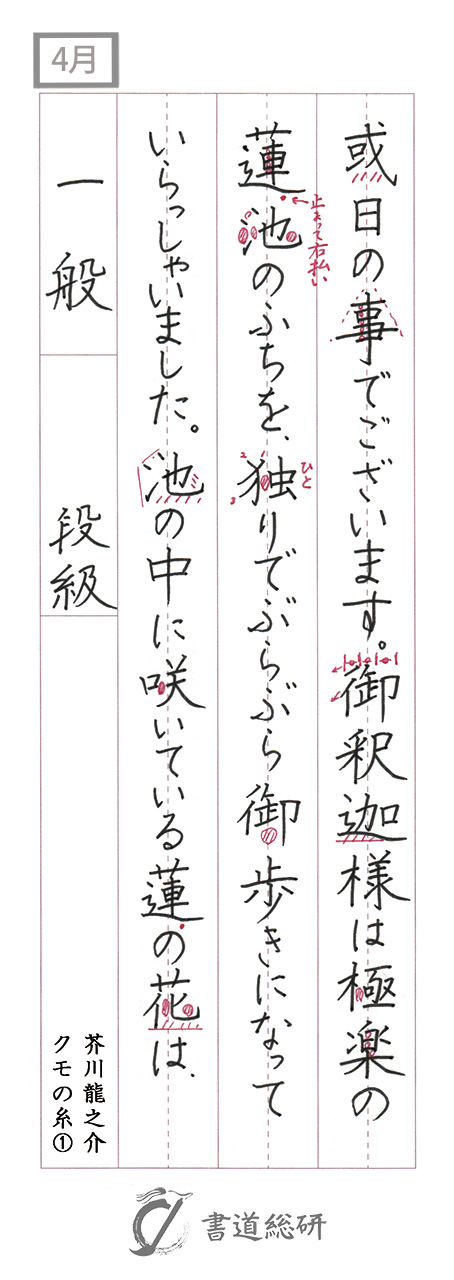 4月
或日の事でございます。御釈迦様は極楽の
蓮池のふちを、独りでぶらぶら御歩きになって
止まって右払い
ひと
1
2
3
いらっしゃいました。池の中に咲いている蓮の花は、
一般
段級
芥川龍之介
クモの糸①
書道総研